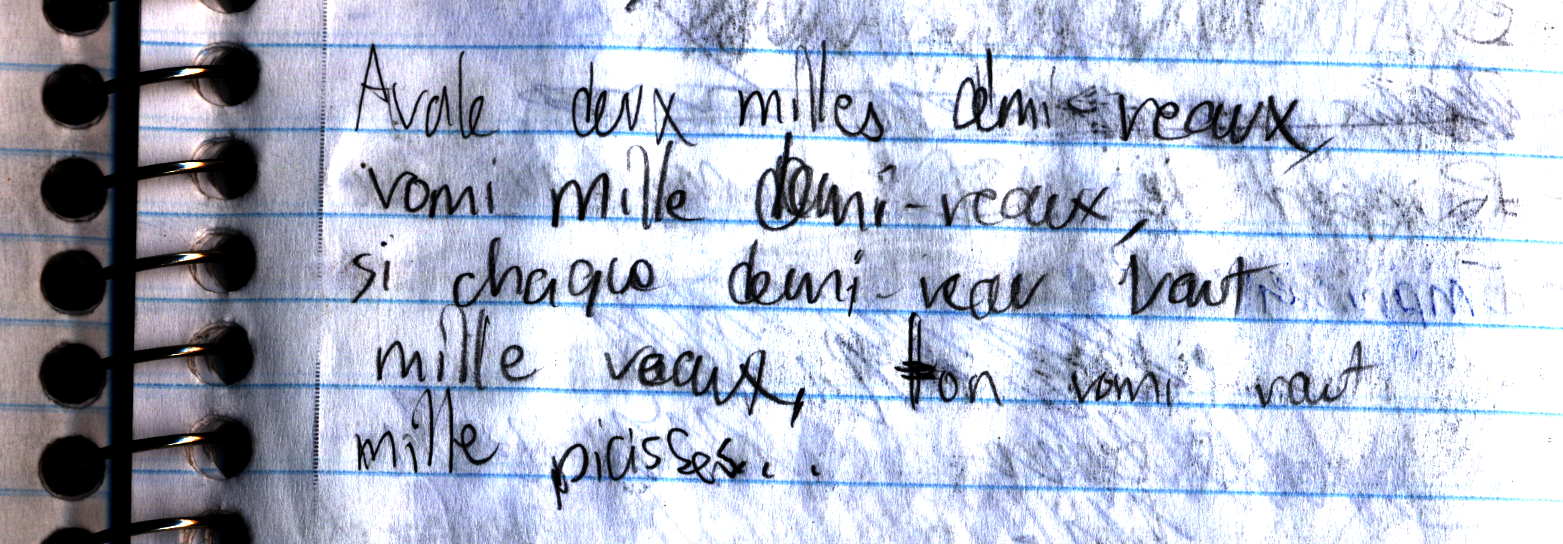 Avale deux milles demi-veaux,
vomi mille demi-veaux,
si chaque demi-veau vaut
mille veaux, ton vomi vaut
mille